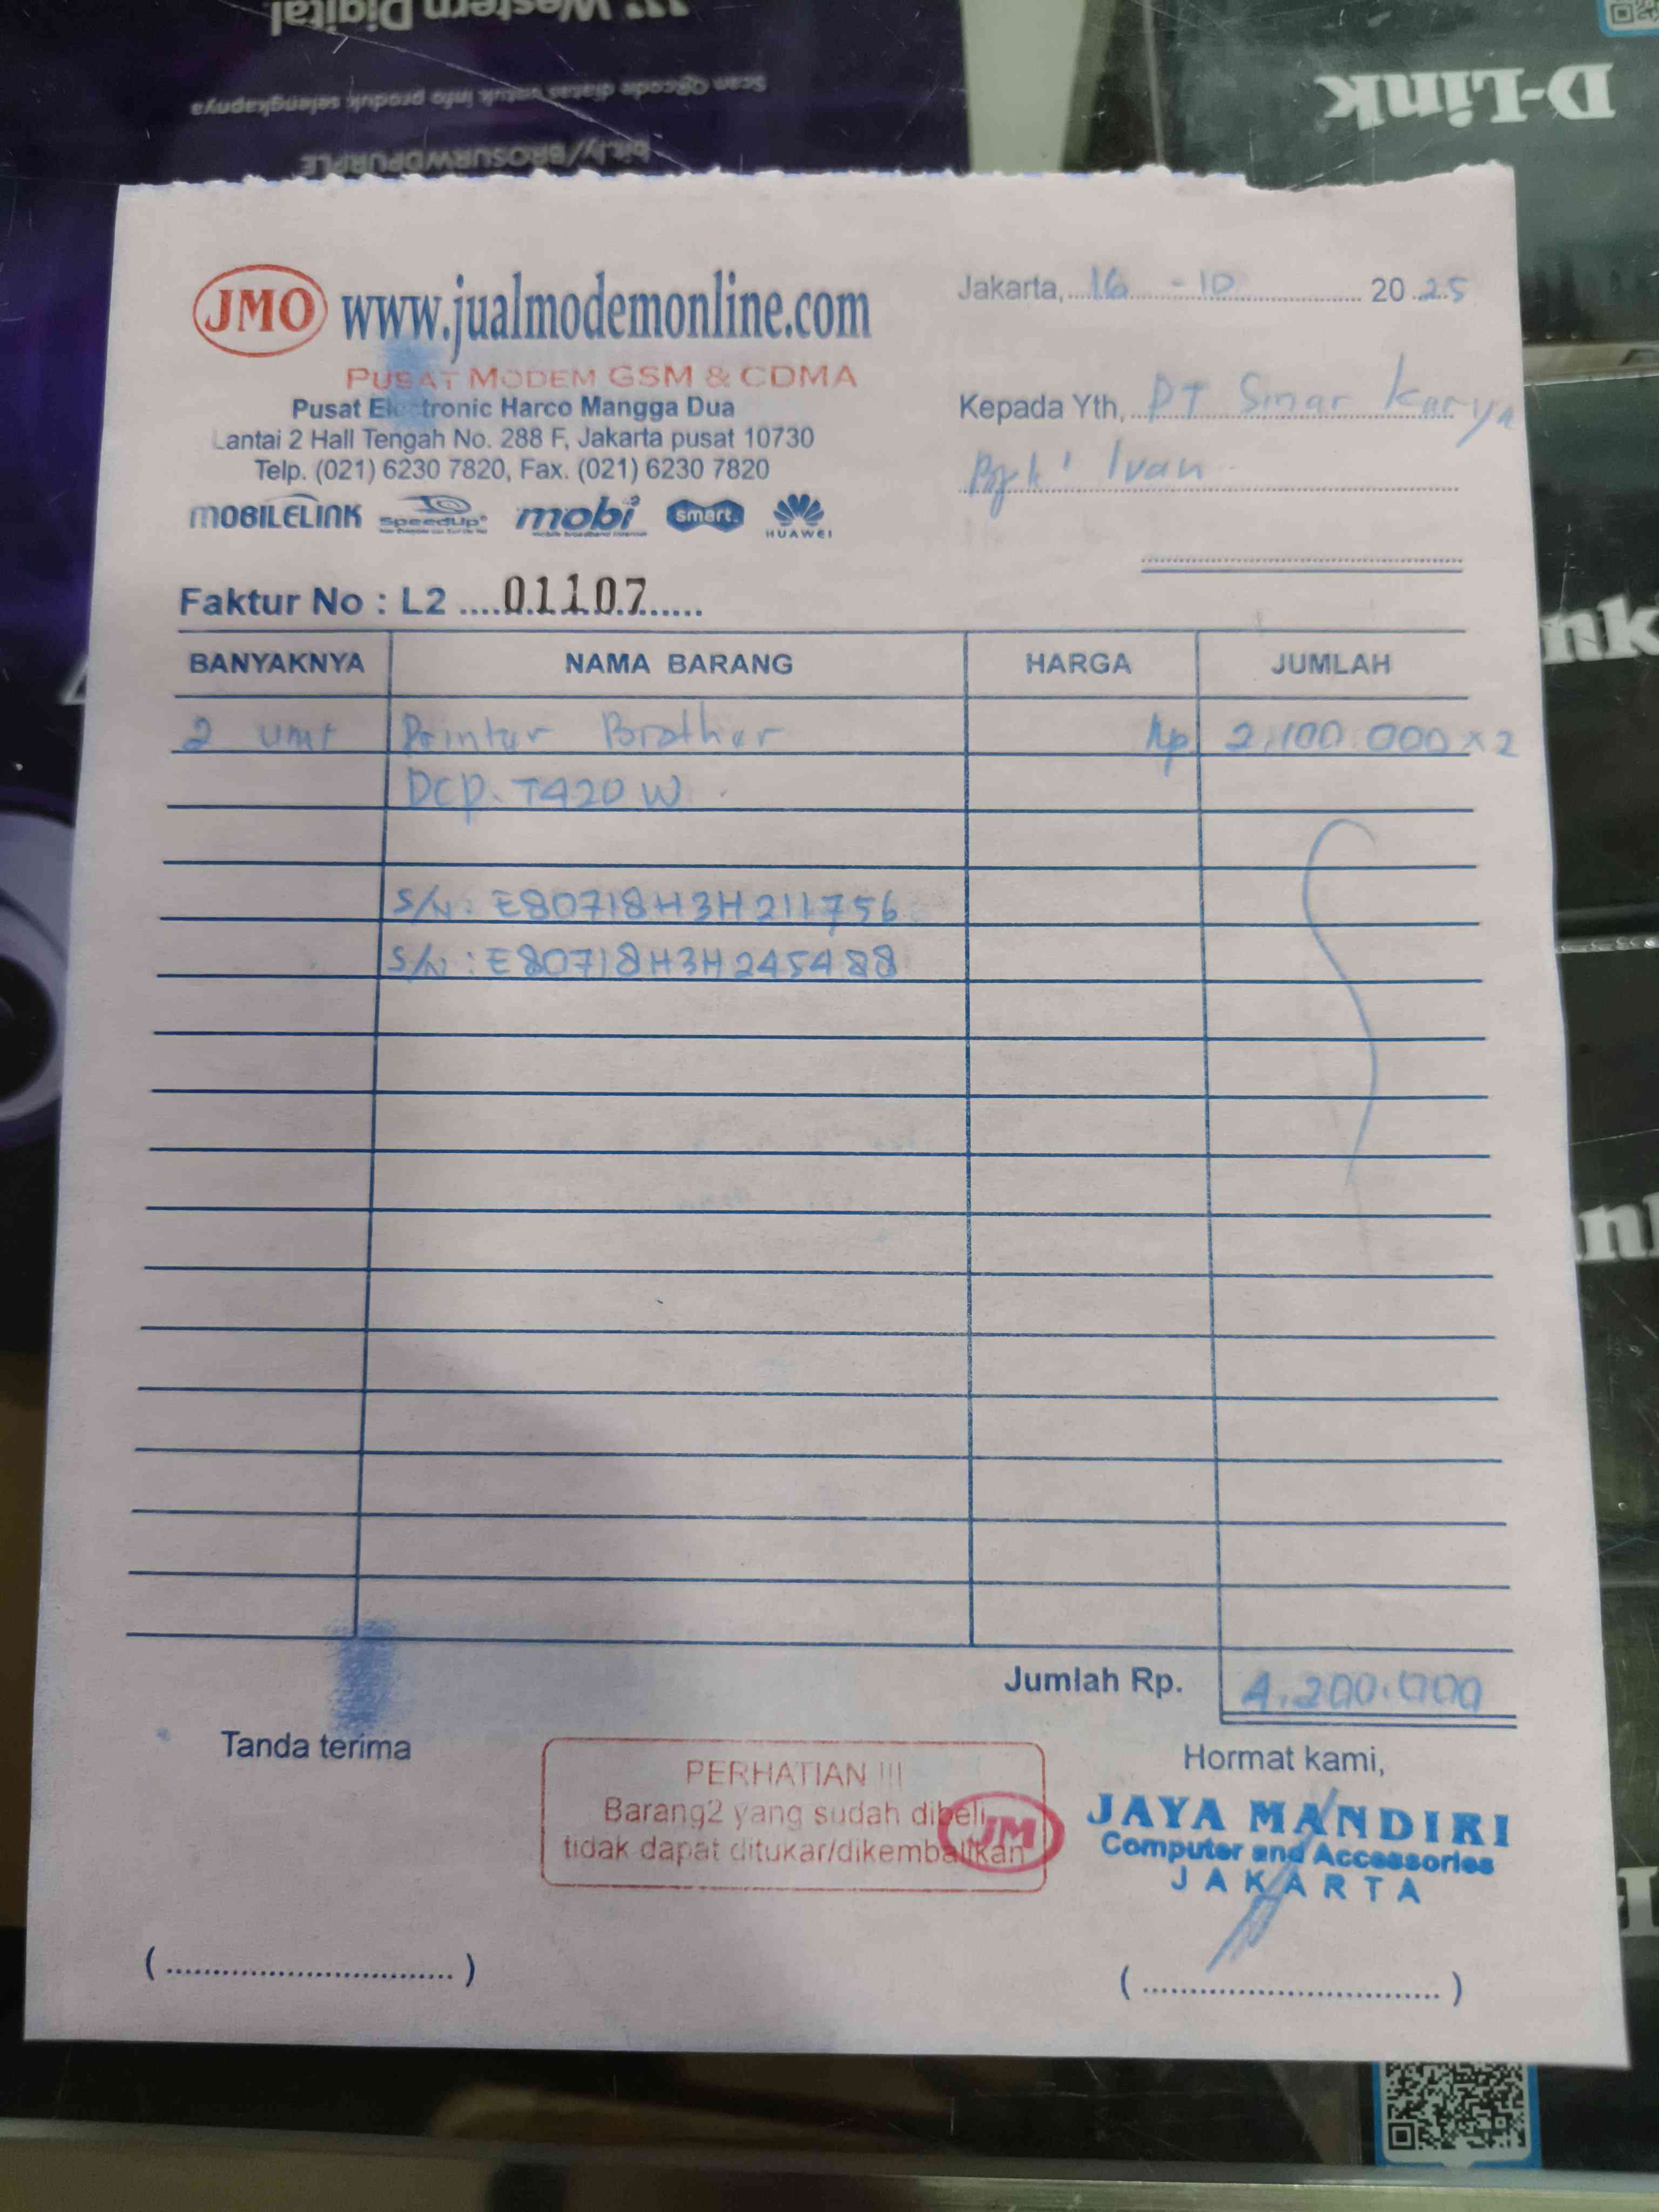 Western Digital
Scan QRcode diatas untuk info produk selengkapnya
bit.ly/BROSURWDPURPLE
D-Link
JMO www.jualmodemonline.com
PUSAT MODEM GSM & CDMA
Pusat Electronic Harco Mangga Dua
Lantai 2 Hall Tengah No. 288 F, Jakarta pusat 10730
Telp. (021) 6230 7820, Fax. (021) 6230 7820
MOBILELINK SpeedUp mobi smart. HUAWEI
Jakarta, 16 - 10 20 25
Kepada Yth, PT Sinar Karya
Bpk' Ivan
Faktur No : L2 ....01107......
BANYAKNYA NAMA BARANG HARGA JUMLAH
2 unit Printer Brother Rp 2,100.000 x 2
DCP. T420 W
S/N : E80718H3H211756
S/N : E80718H3H245488
Jumlah Rp. 4.200.000
Tanda terima
PERHATIAN !!!
Barang2 yang sudah dibeli
tidak dapat ditukar/dikembalikan
JM
Hormat kami,
JAYA MANDIRI
Computer and Accessories
JAKARTA
(................................)
(................................)
nk